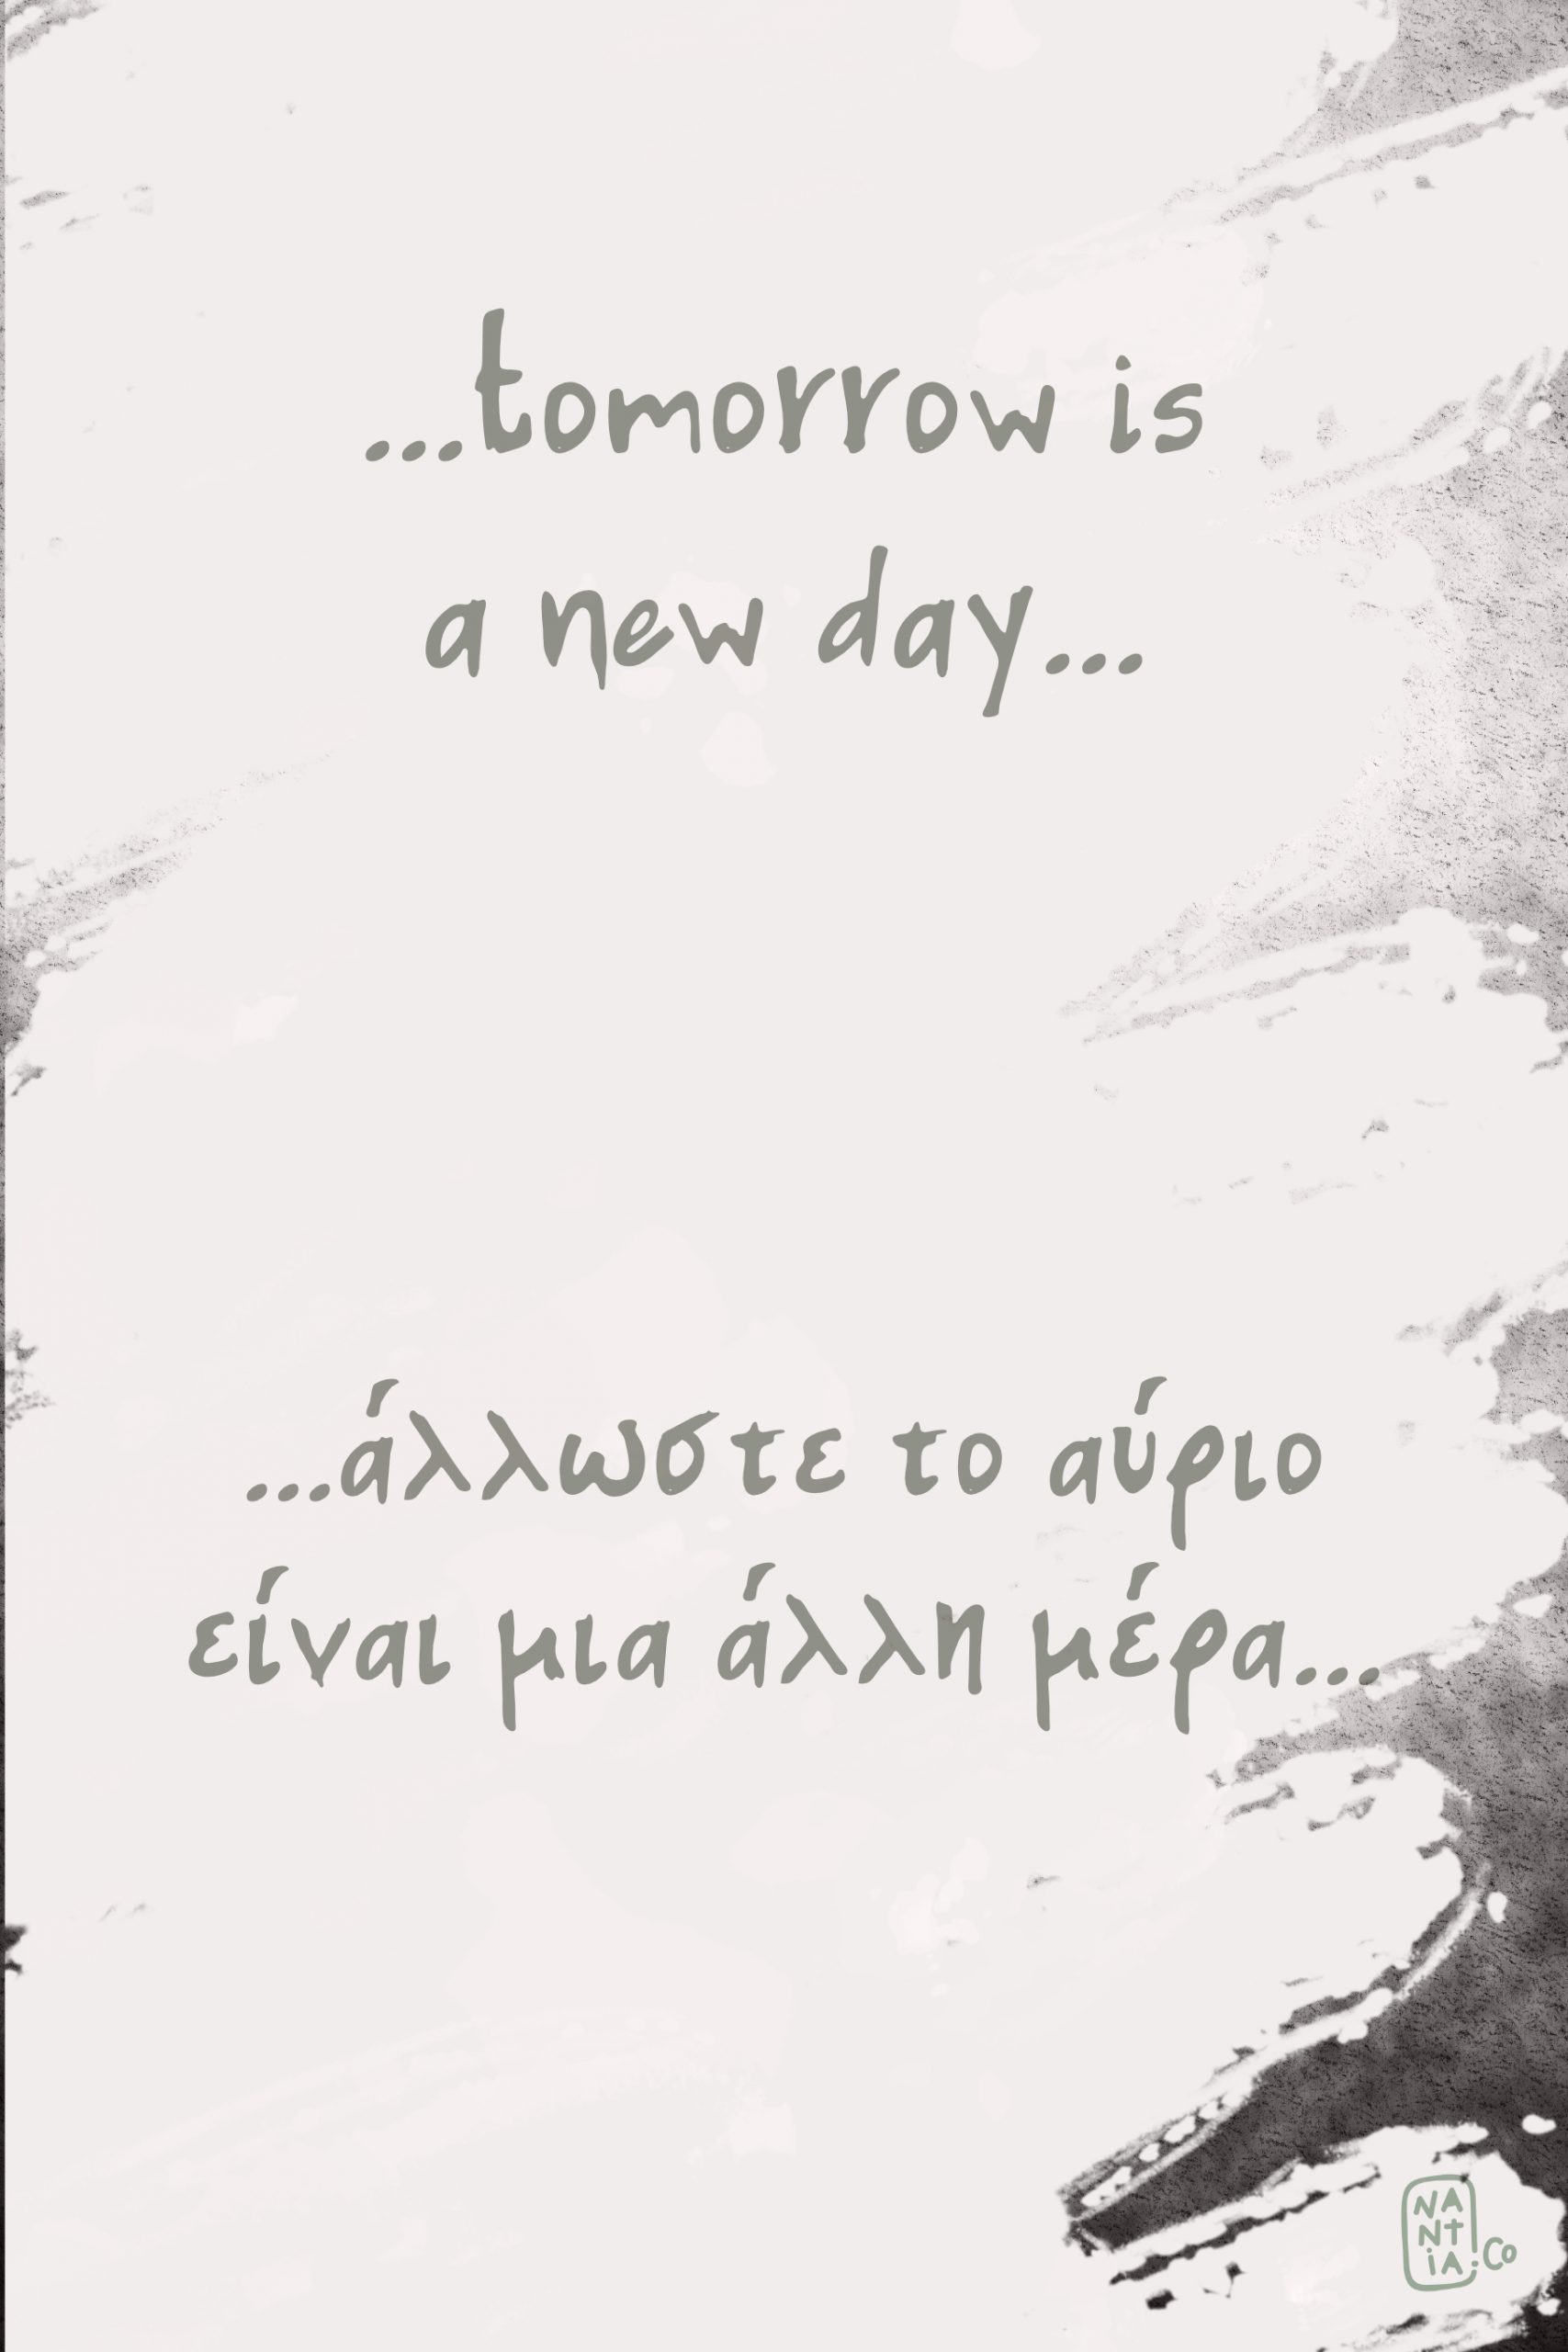 ...tomorrow is
a new day...
...άλλωστε το αύριο
είναι μια άλλη μέρα...
NA
Nt
iA.Co